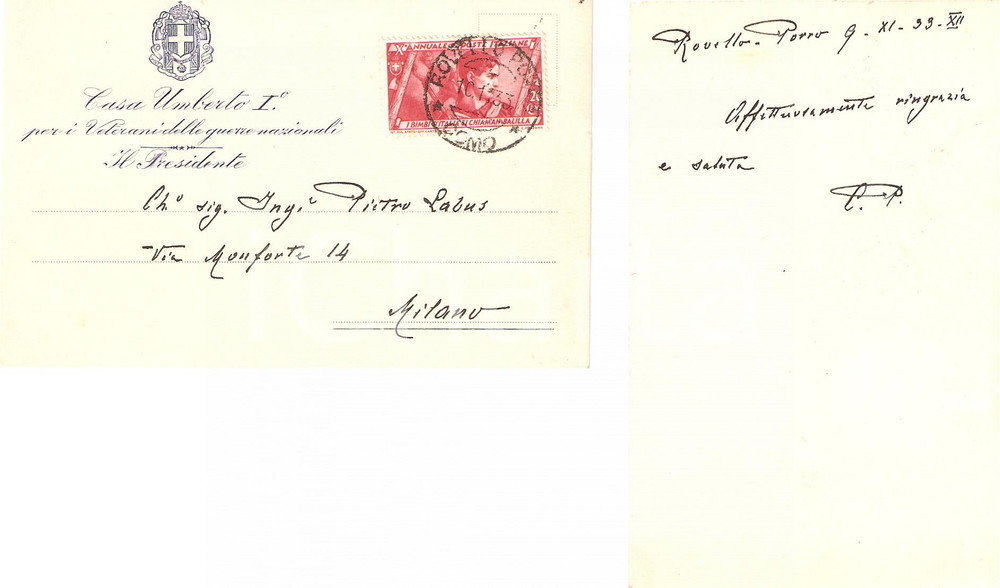 Casa Umberto I.º
per i Veterani delle guerre nazionali
Il Presidente
Xº ANNUALE
I BIMBI D'ITALIA SI CHIAMAN BALILLA
20
ROVELLO
COMO
Ch.º sig. Ing.e Pietro Labus
Via Monforte 14
Milano
Rovello-Porro 9-XI-33-XII
Affettuosamente ringrazia
e saluta
C. P.